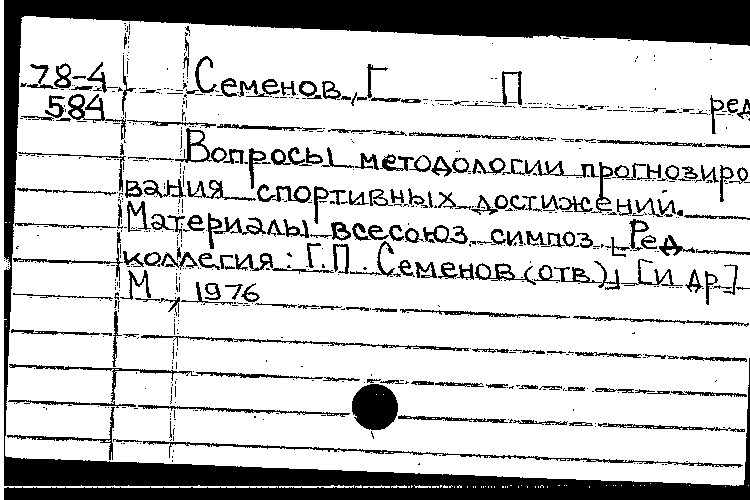 78-4 Семенов, Г П ред
584
Вопросы методологии прогнозиро
вания спортивных достижений.
Материалы всесоюз. симпоз. [Ред
коллегия: Г.П. Семенов (отв.)] [и др]
М , 1976